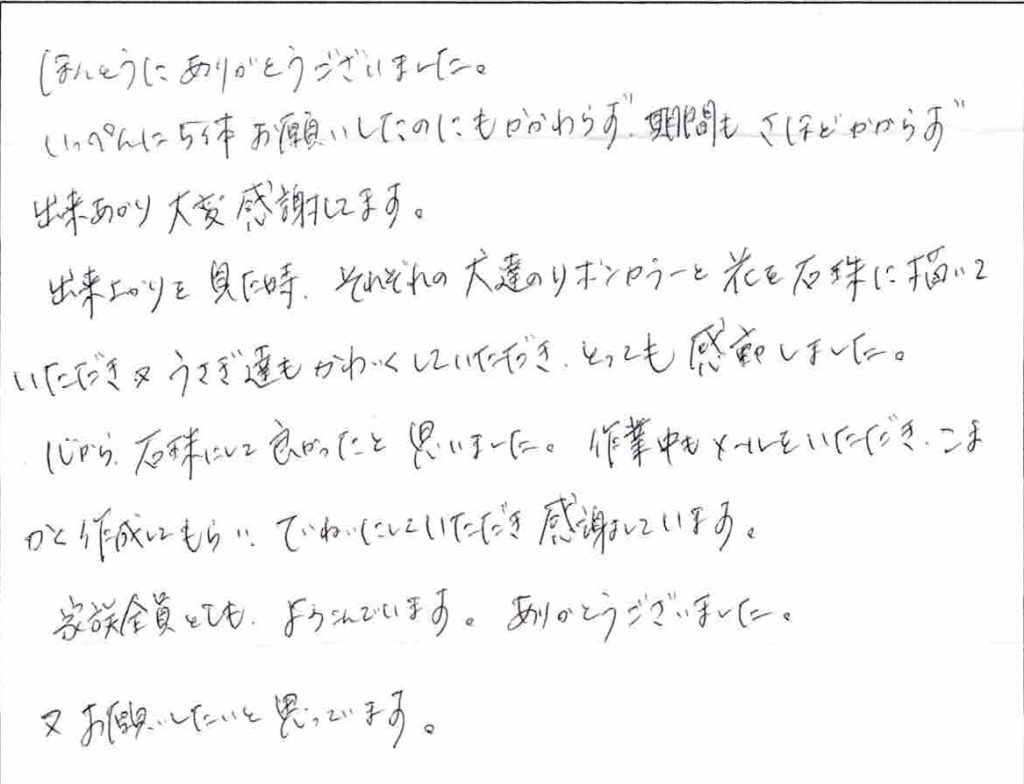 ほんとうにありがとうございました。
いっぺんに5体お願いしたのにもかかわらず、期間もさほどかからず
出来あがり大変感謝してます。
出来上がりを見た時、それぞれの犬達のリボンカラーと花を石珠に描いて
いただき又うさぎ達もかわいくしていただき、とっても感動しました。
心から、石珠にして良かったと思いました。作業中もメールをいただき、こま
かく作成してもらい、ていねいにしていただき感謝しています。
家族全員とても、よろこんでいます。ありがとうございました。
又お願いしたいと思っています。